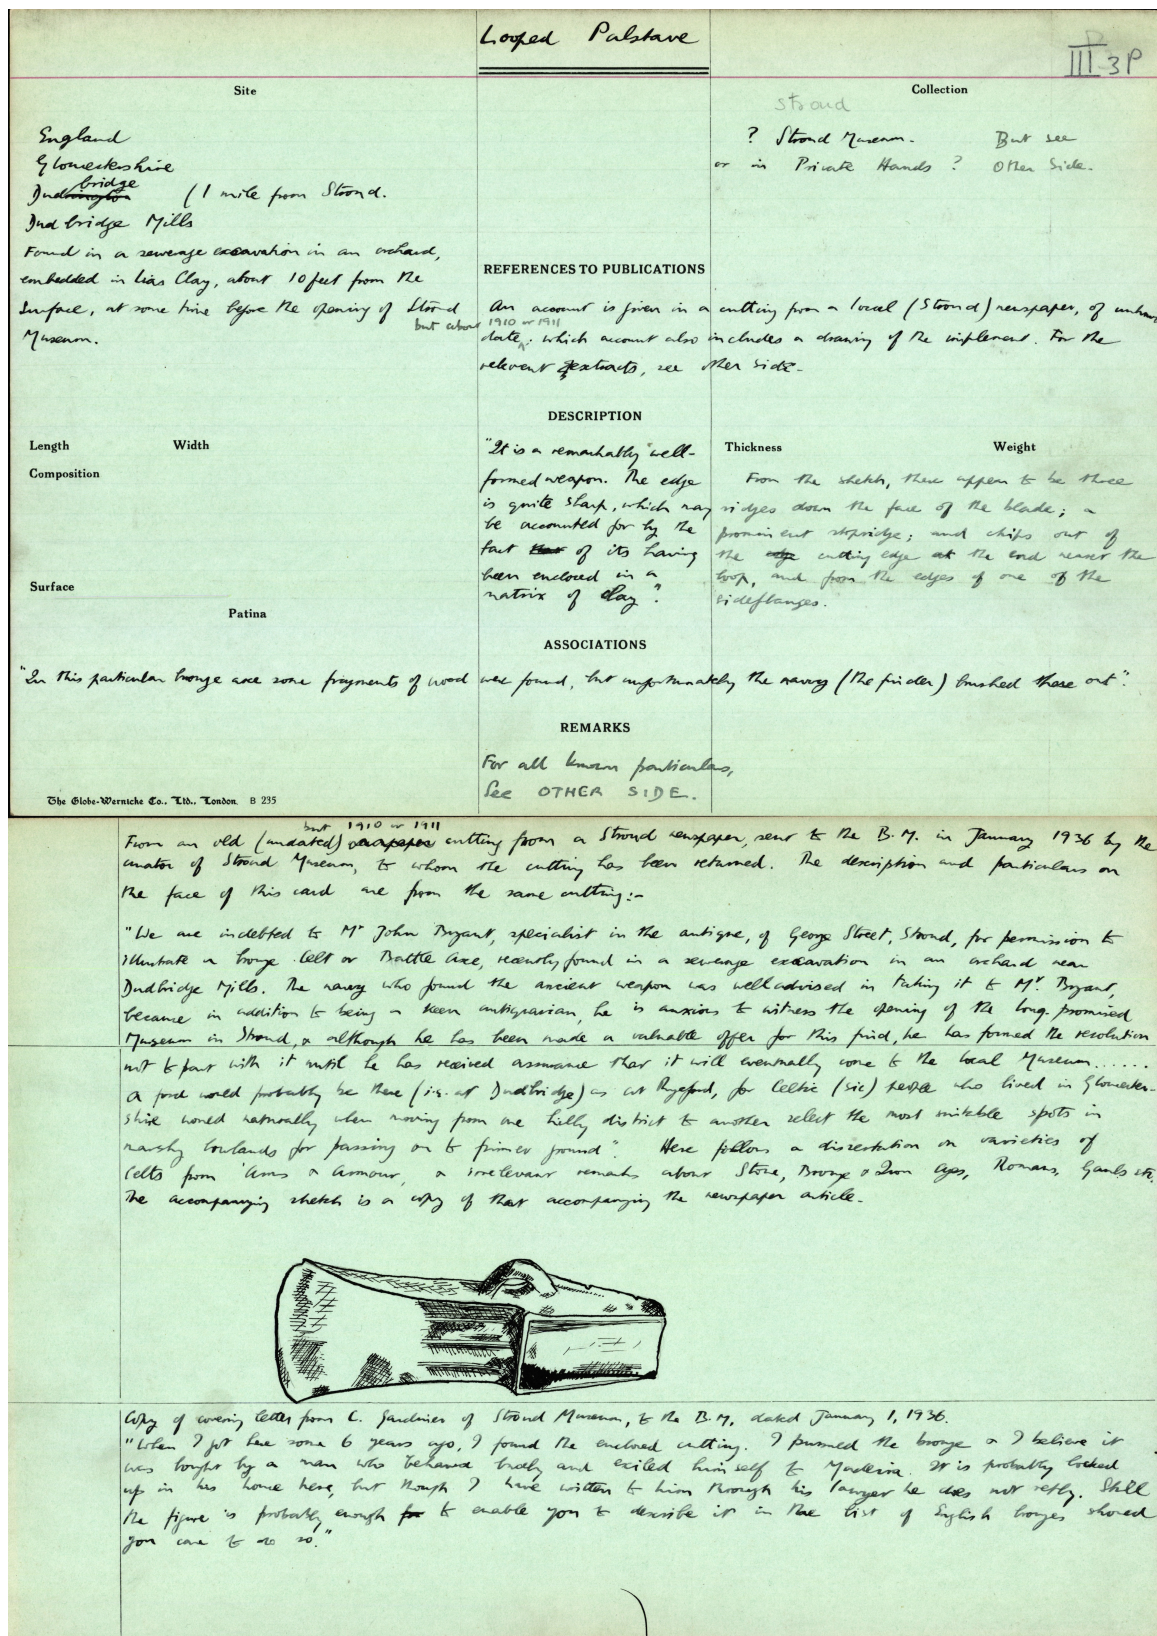 Looped Palstave
III 3P
Site
Collection
Stroud
England
Gloucestershire
Dudbridge (1 mile from Stroud.
Dudbridge Mills
Found in a sewerage excavation in an orchard,
embedded in Lias Clay, about 10 feet from the
Surface, at some time before the opening of Stroud
Museum.
? Stroud Museum. But see
or in Private Hands ? Other Side.
REFERENCES TO PUBLICATIONS
An account is given in a cutting from a local (Stroud) newspaper, of
but about 1910 or 1911
date; which account also includes a drawing of the implement. For the
relevent extracts, see other side.
DESCRIPTION
Length Width
Composition
Surface
Patina
"It is a remarkably well-
formed weapon. The edge
is quite sharp, which may
be accounted for by the
fact of its having
been enclosed in a
matrix of clay".
Thickness Weight
From the sketch, there appear to be three
ridges down the face of the blade; a
prominent stopridge; and chips out of
the cutting edge at the end nearest the
loop, and from the edges of one of the
sideflanges.
ASSOCIATIONS
"In this particular bronze axe some fragments of wood were found, but unfortunately the navvy (the finder) brushed these out".
REMARKS
For all known particulars,
See OTHER SIDE.
The Globe-Wernicke Co., Ltd., London. B 235
but 1910 or 1911
From an old (undated) cutting from a Stroud newspaper, sent to the B.M. in January 1936 by the
curator of Stroud Museum, to whom the cutting has been returned. The description and particulars on
the face of this card are from the same cutting:-
"We are indebted to Mr John Bryant, specialist in the antique, of George Street, Stroud, for permission to
illustrate a bronze Celt or Battle Axe, recently found in a sewerage excavation in an orchard near
Dudbridge Mills. The navvy who found the ancient weapon was well advised in taking it to Mr. Bryant,
because in addition to being a keen antiquarian, he is anxious to witness the opening of the long-promised
Museum in Stroud, & although he has been made a valuable offer for this find, he has formed the resolution
not to part with it until he has received assurance that it will eventually come to the local Museum......
A ford would probably be there (i.e. at Dudbridge) as at Ryeford, for Celtic (sic) people who lived in Gloucester-
shire would naturally when moving from one hilly district to another select the most suitable spots in
marshy lowlands for passing on to firmer ground". Here follows a dissertation on varieties of
Celts from 'Arms & Armour', & irrelevant remarks about Stone, Bronze & Iron Ages, Romans, Gauls etc.
The accompanying sketch is a copy of that accompanying the newspaper article.
Copy of covering letter from C. Gardiner of Stroud Museum, to the B.M. dated January 1, 1936.
"When I got here some 6 years ago, I found the enclosed cutting. I pursued the bronze & I believe it
was bought by a man who behaved badly and exiled himself to Madeira. It is probably locked
up in his house here, but though I have written to him through his lawyer he does not reply. Still
the figure is probably enough to enable you to describe it in the list of English bronzes should
you care to do so."